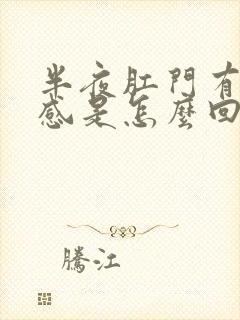 半夜肛門有
感是怎麼回
騰江